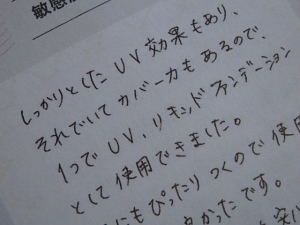 敏感
しっかりとしたUV効果もあり、
それでいてカバー力もあるので、
1つでUV、リキッドファンデーション
として使用できました。
にもぴったりつくので使用
かったです。